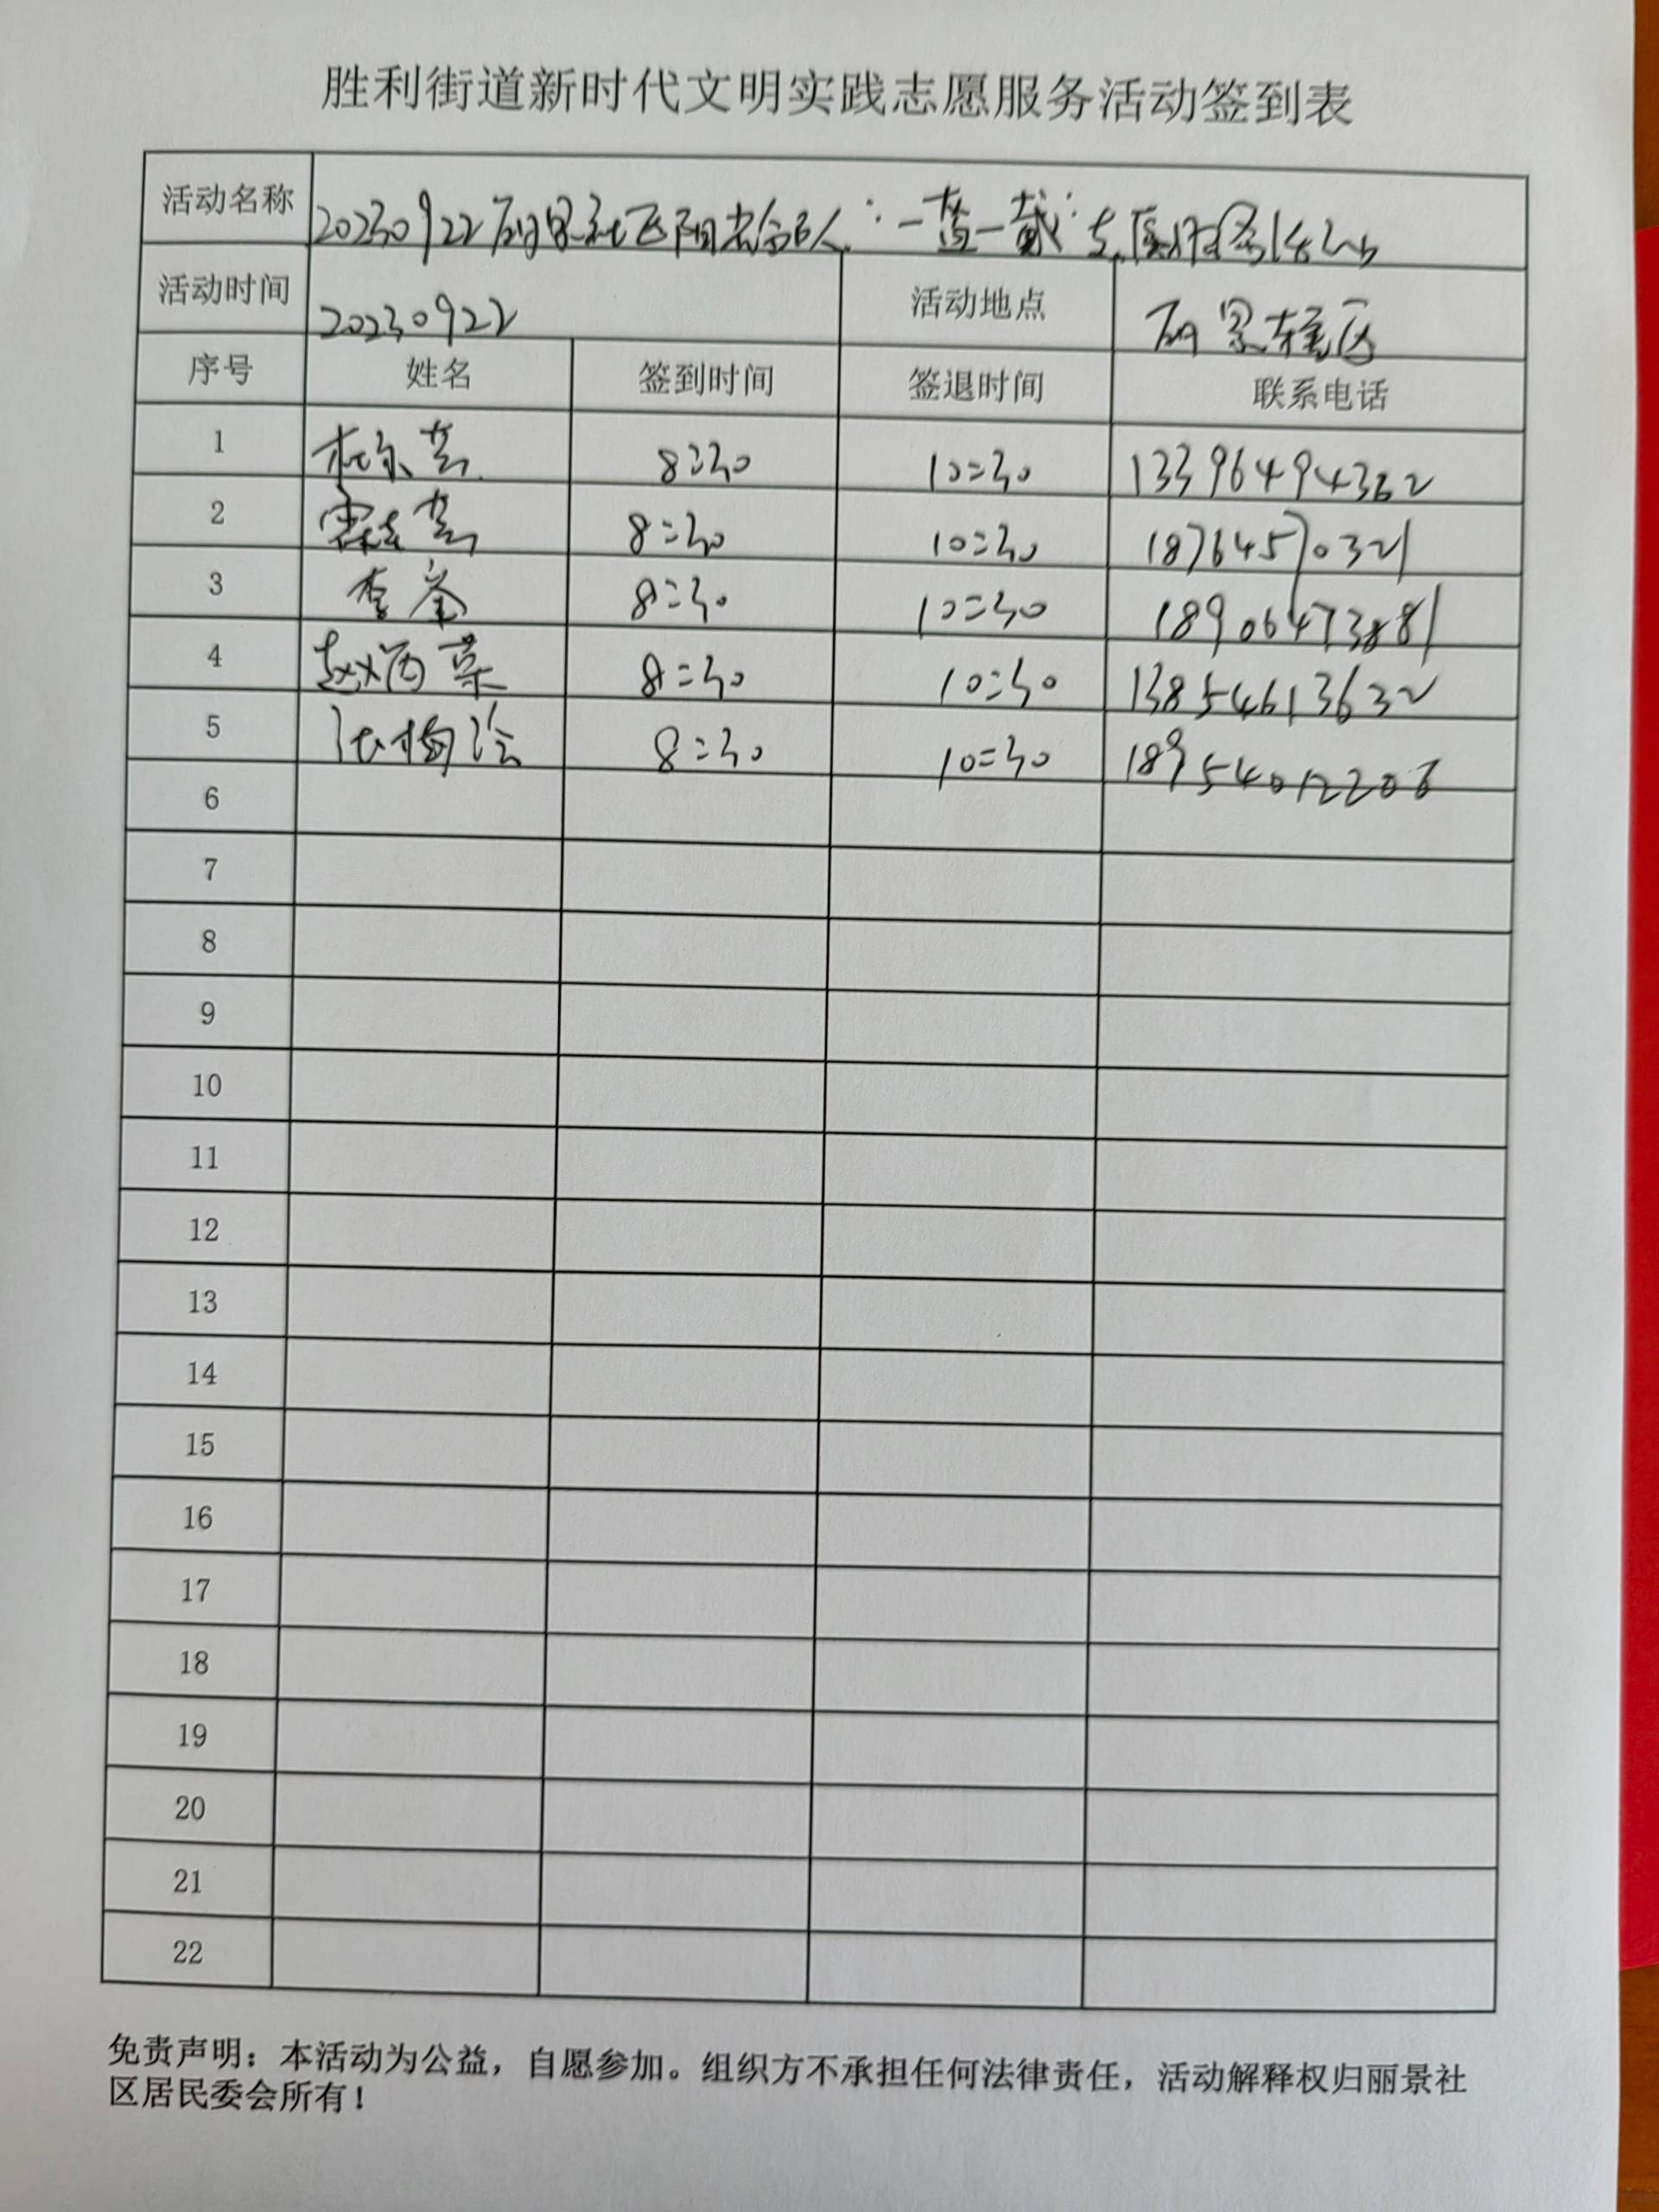 胜利街道新时代文明实践志愿服务活动签到表
活动名称 20230922丽景社区阳光合伙人“一盔一戴”志愿服务活动
活动时间 20230922 活动地点 丽景辖区
序号 姓名 签到时间 签退时间 联系电话
1 8:30 10:30 13396494362
2 8:30 10:30 18764570321
3 李鉴 8:30 10:30 18906473881
4 赵丙菜 8:30 10:30 13854613632
5 8:30 10:30 18954012206
6
7
8
9
10
11
12
13
14
15
16
17
18
19
20
21
22
免责声明：本活动为公益，自愿参加。组织方不承担任何法律责任，活动解释权归丽景社
区居民委会所有！